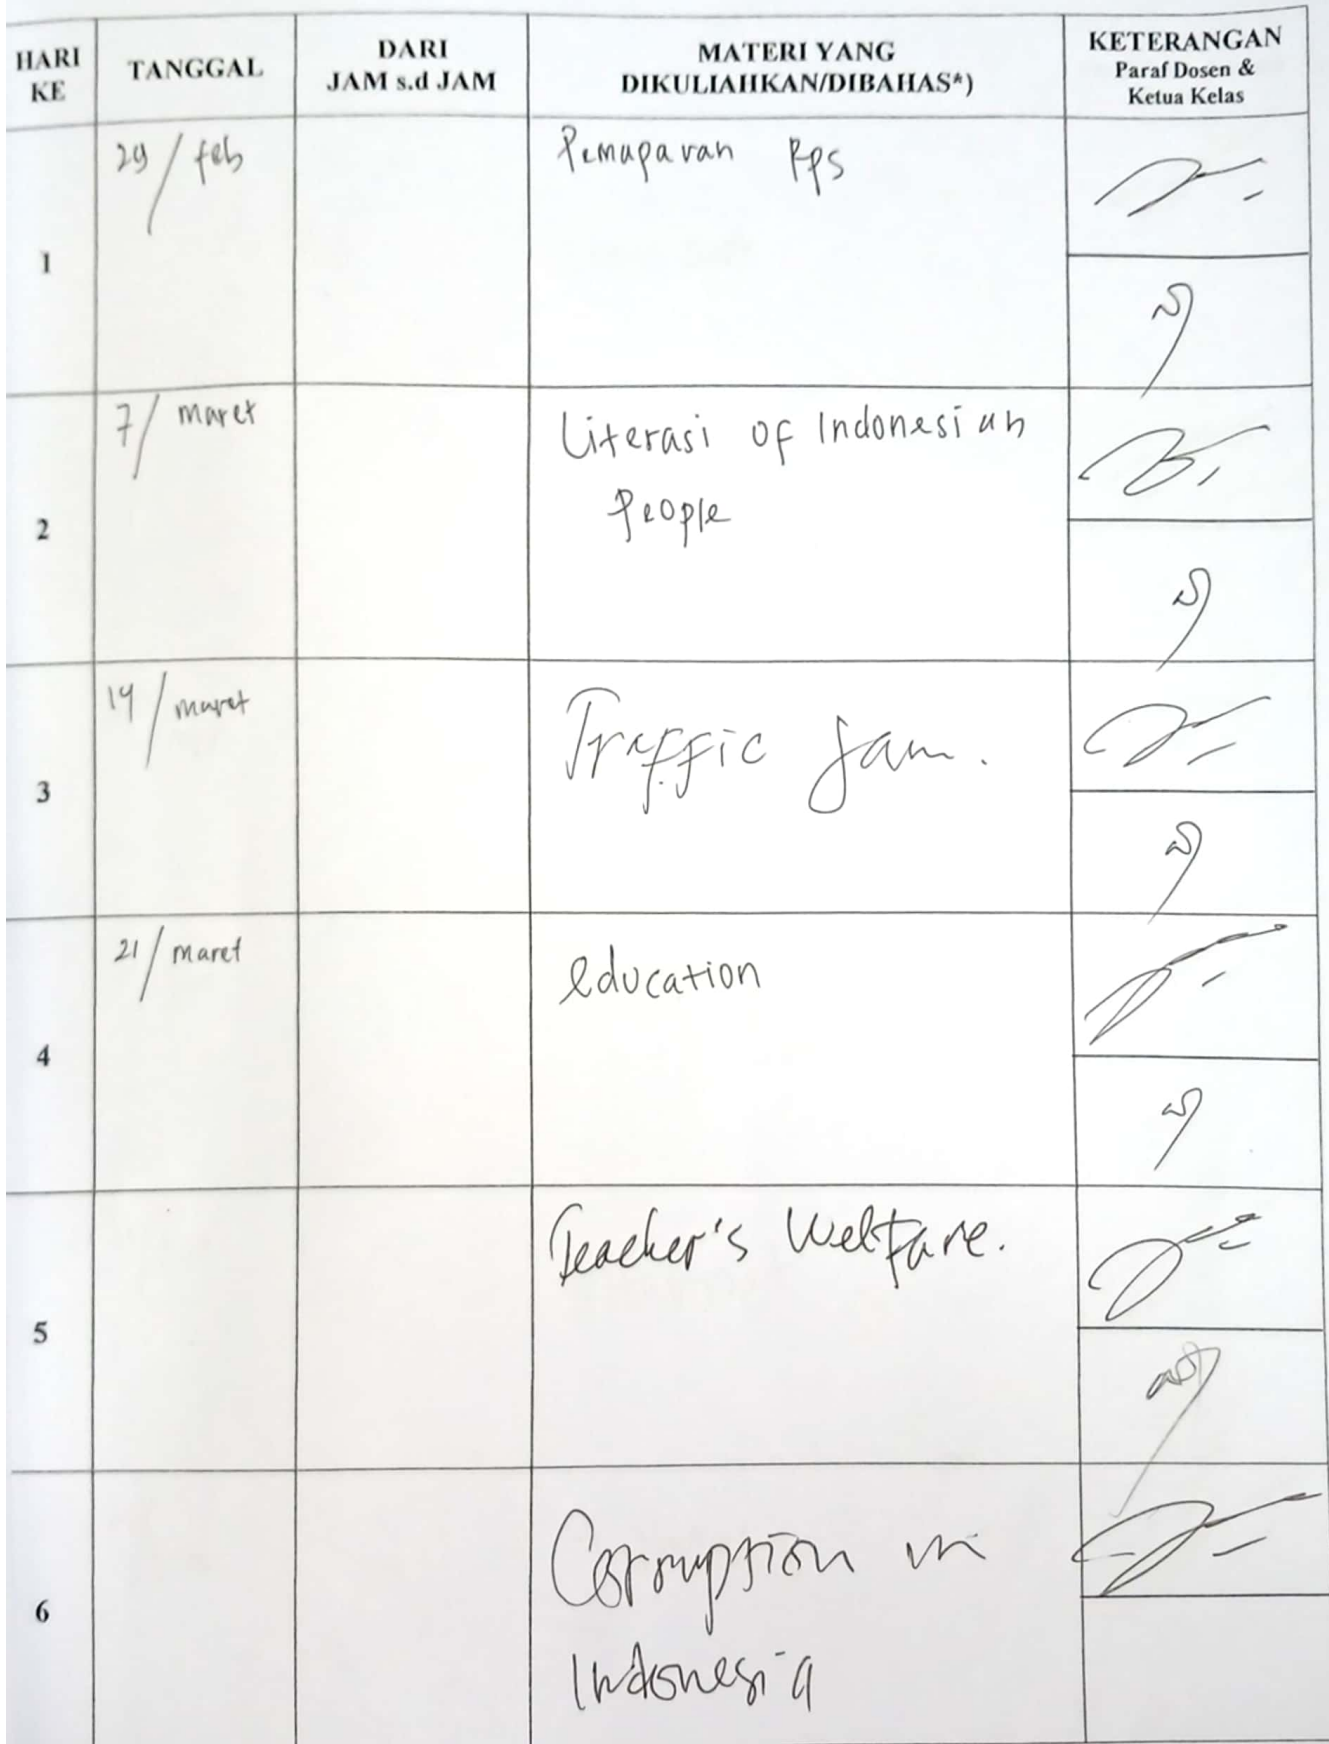 HARI KE
TANGGAL
DARI
JAM s.d JAM
MATERI YANG
DIKULIAHKAN/DIBAHAS*)
KETERANGAN
Paraf Dosen &
Ketua Kelas
1
29 / feb
Pemaparan Rps
2
7 / maret
Literasi of Indonesian
People
3
14 / maret
Traffic Jam.
4
21 / maret
education
5
Teacher's Welfare.
6
Corruption in
Indonesia